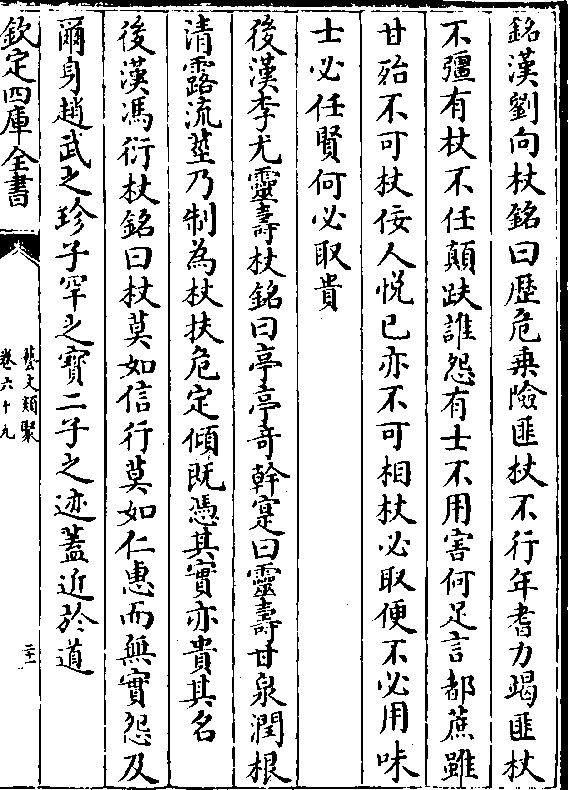 銘漢劉向杖銘曰歴危乗險匪杖不行年耆力竭匪杖
不彊有杖不任顛跌誰怨有士不用害何足言都蔗雖
甘殆不可杖佞人恱己亦不可相杖必取便不必用味
士必任賢何必取貴
後漢李尤靈壽杖銘曰亭亭奇幹寔曰靈壽甘泉潤根
清露流莖乃制為杖扶危定傾既憑其實亦貴其名
後漢馮衍杖銘曰杖莫如信行莫如仁惠而無實怨及
爾身趙武之珍子罕之寳二子之迹蓋近於道
欽定四庫全書
藝文類聚
卷六十九
二十一